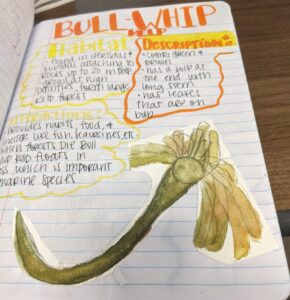 BULL-WHIP
KELP
Habitat
Found in intertidal +
subtidal attaching to
rocks up to 20 m deep
grows at high
densities, forms large
kelp forest
Description:
Color: green +
brown
has a bulb at
the end with
long stem
has leaves
that are on
bulb
Provides habits, food, +
shelter to fish, sea urchines, etc
When forests die Bull
kelp floats in
which is important
marine species